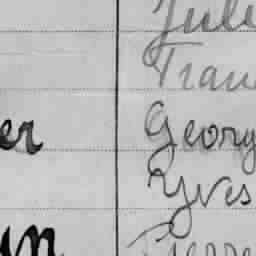 Juli
Fran
er Georg
Yves
un Pierre